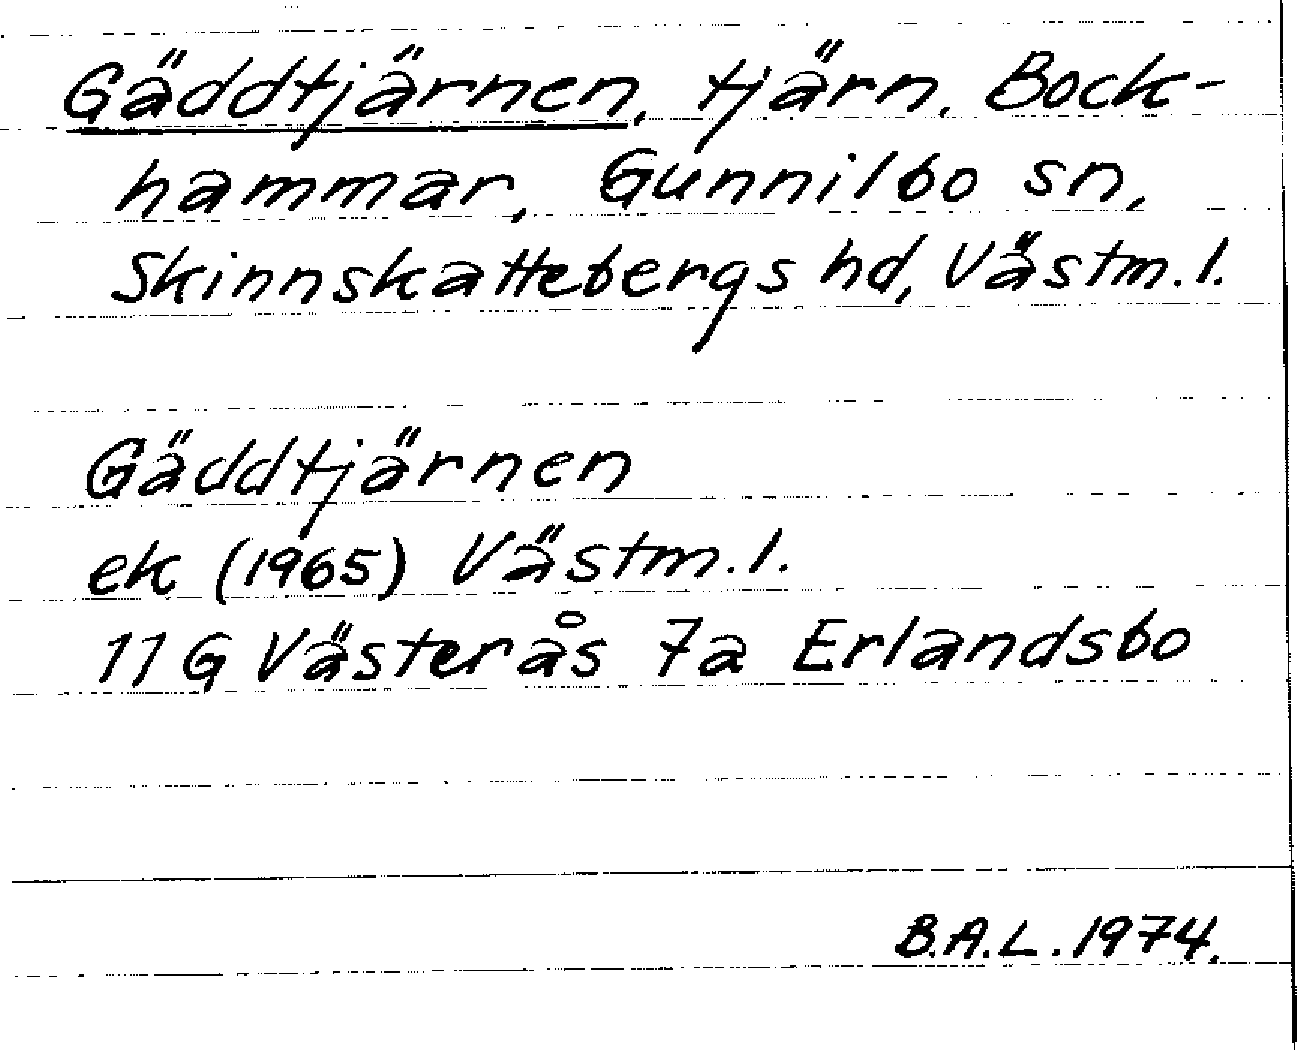 Gäddtjärnen, tjärn, Bock-
hammar, Gunnilbo sn,
Skinnskattebergs hd, Västm.l.
Gäddtjärnen
ek (1965) Västm.l.
11G Västerås 7a Erlandsbo
B.A.L. 1974.